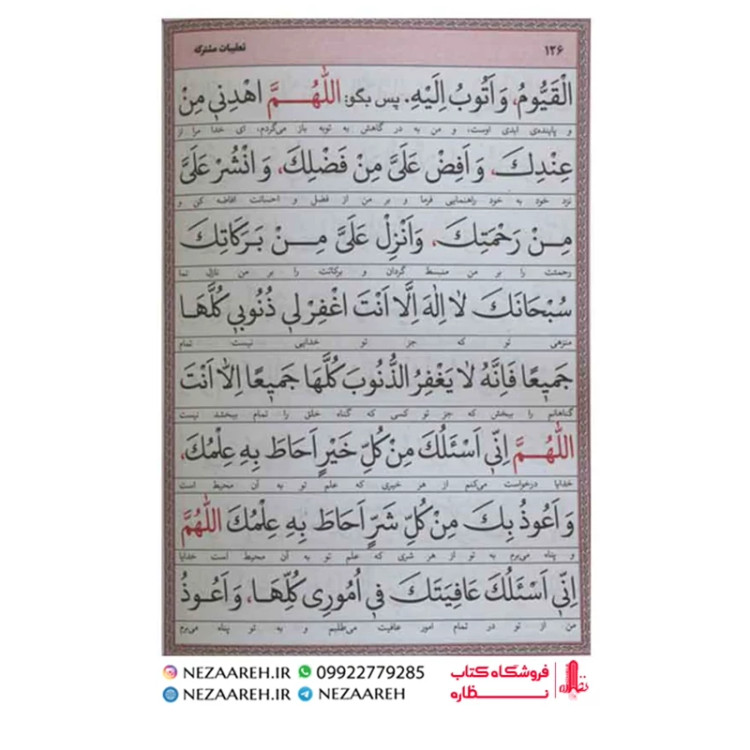 ۱۳۶
تعقیبات مشترکه
الْقَيُّومُ، وَ اَتُوبُ اِلَيْهِ. پس بگو: اَللّٰهُمَّ اهْدِنِي مِنْ
و پاینده‌ی ابدی اوست، و من به در گاهش به توبه باز می‌گردم، ای خدا مرا از
عِنْدِكَ، وَ اَفِضْ عَلَيَّ مِنْ فَضْلِكَ، وَ انْشُرْ عَلَيَّ
نزد خود به خود راهنمایی فرما و بر من از فضل و احسانت افاضه کن و
مِنْ رَحْمَتِكَ، وَاَنْزِلْ عَلَيَّ مِنْ بَرَكَاتِكَ
رحمتت را بر من منبسط گردان و برکاتت را بر من نازل نما
سُبْحَانَكَ لا اِلٰهَ اِلَّا اَنْتَ اغْفِرْ لِي ذُنُوبِي كُلَّهَا
منزهی تو که جز تو خدایی نیست تمام
جَمِيعًا فَاِنَّهُ لا يَغْفِرُ الذُّنُوبَ كُلَّهَا جَمِيعًا اِلّا اَنْتَ
گناهانم را ببخش که جز تو کسی که گناه خلق را تمام ببخشد نیست
اَللّٰهُمَّ اِنِّي اَسْئَلُكَ مِنْ كُلِّ خَيْرٍ اَحَاطَ بِهِ عِلْمُكَ،
خدایا درخواست می‌کنم از هر خیری که علم تو به آن محیط است
وَ اَعُوذُ بِكَ مِنْ كُلِّ شَرٍّ اَحَاطَ بِهِ عِلْمُكَ اَللّٰهُمَّ
و پناه می‌برم به تو از هر شری که علم تو به آن محیط است خدایا
اِنِّي اَسْئَلُكَ عَافِيَتَكَ فِي اُمُورِي كُلِّهَا، وَ اَعُوذُ
من از تو در تمام امور عافیت می‌طلبم و به تو پناه می‌برم
NEZAAREH.IR 09922779285
NEZAAREH.IR NEZAAREH
فروشگاه کتاب
نظاره